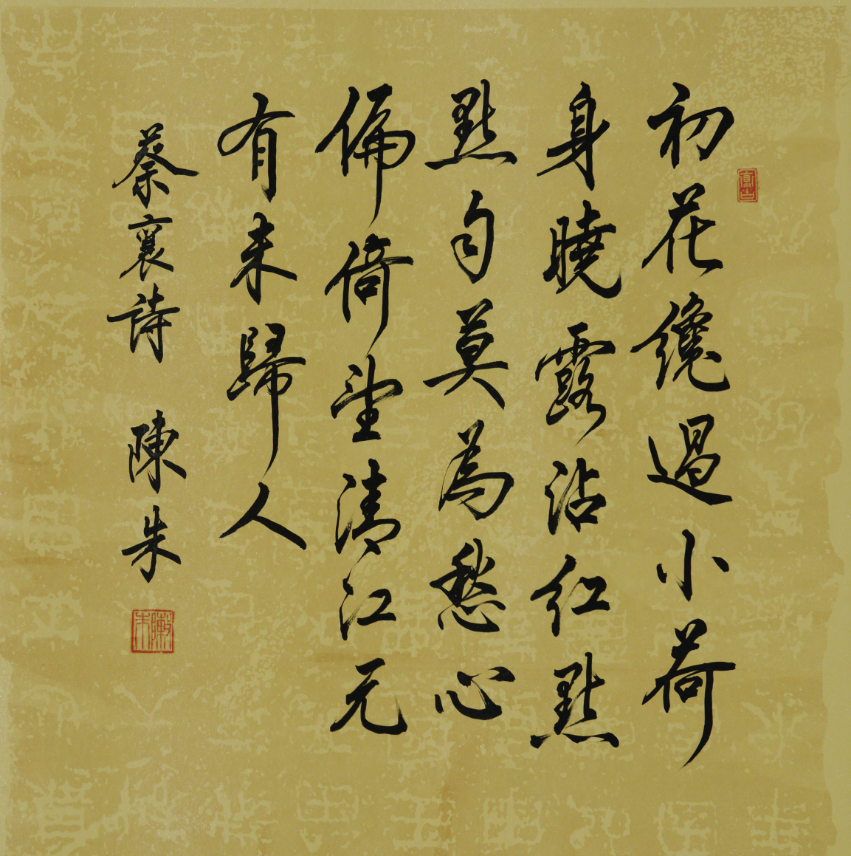 初花纔過小荷
身曉露沾紅點
點勻莫為愁心
偏倚望清江元
有未歸人
蔡襄詩 陳朱
陳朱